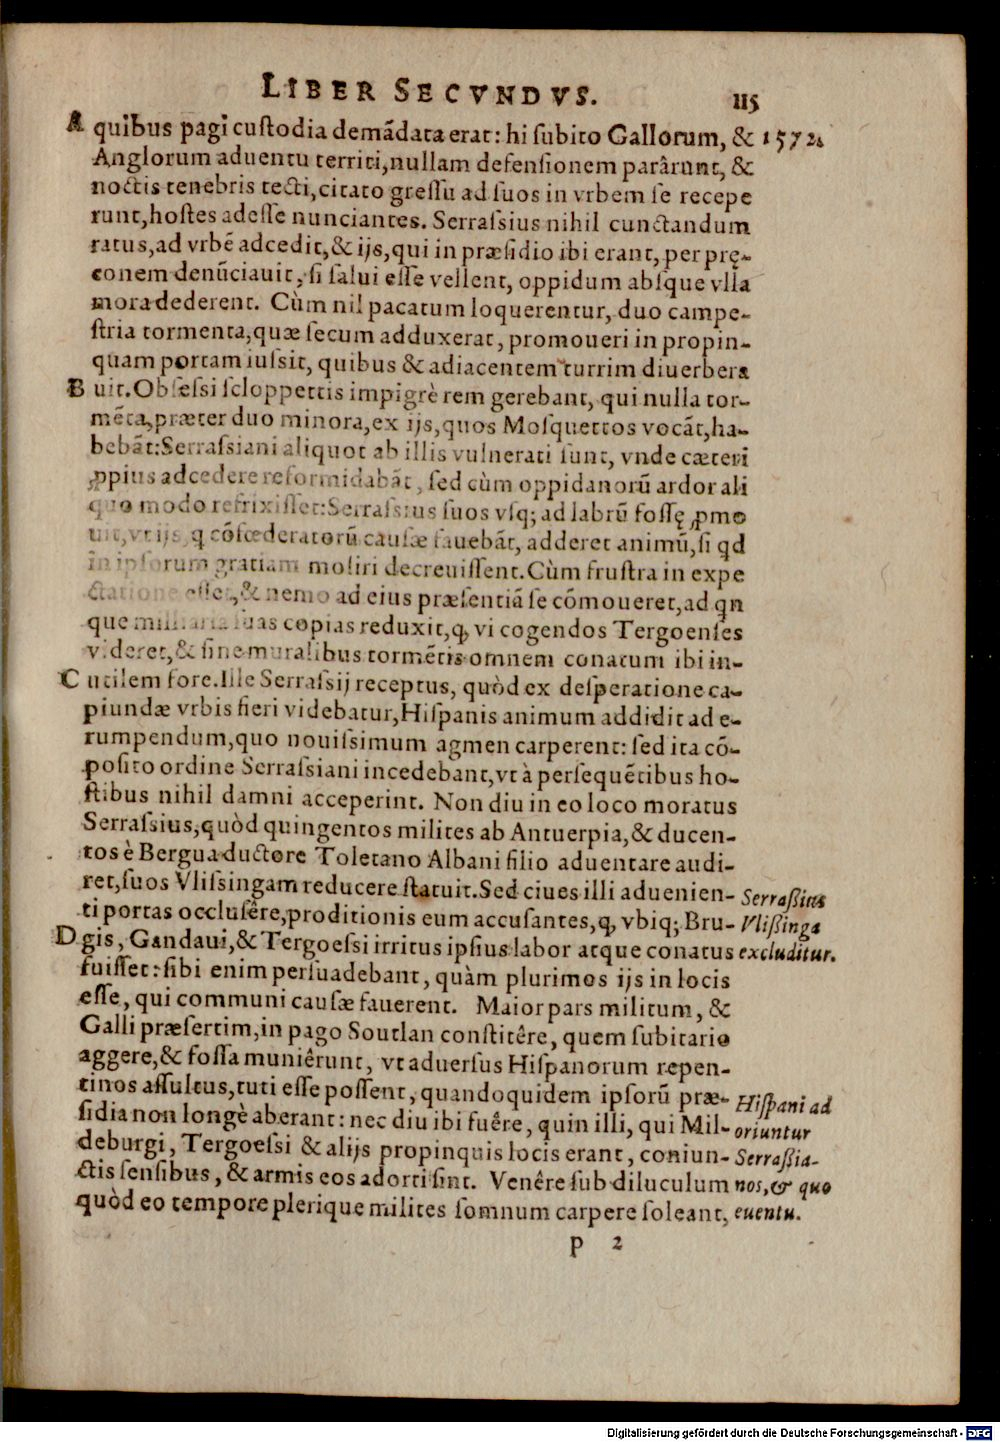 LIBER SECVNDVS. 115
A quibus pagi custodia demãdata erat: hi subito Gallorum, & 1572.
Anglorum aduentu territi, nullam defensionem parârunt, &
noctis tenebris tecti, citato gressu ad suos in vrbem se recepe
runt, hostes adesse nunciantes. Serrassius nihil cunctandum
ratus, ad vrbẽ adcedit, & ijs, qui in præsidio ibi erant, per prę-
conem denũciauit, si salui esse vellent, oppidum absque vlla
mora dederent. Cùm nil pacatum loquerentur, duo campe-
stria tormenta, quæ secum adduxerat, promoueri in propin-
quam portam iussit, quibus & adiacentem turrim diuerbera
B uit. Obsessi scloppettis impigrè rem gerebant, qui nulla tor-
mẽta, præter duo minora, ex ijs, quos Mosquettos vocãt, ha-
bebãt: Serrassiani aliquot ab illis vulnerati sunt, vnde cæteri
ꝓpius adcedere reformidabãt, sed cùm oppidanorũ ardor ali
quo modo refrixisset: Serrassius suos vsq; ad labrũ fossę ꝓmo
uit, vt ijs, q cõfœderatorũ causæ fauebãt, adderet animũ, si qd
in ipsorum gratiam moliri decreuissent. Cùm frustra in expe
ctatione esset, & nemo ad eius præsentiã se cõmoueret, ad qn
que milliaria suas copias reduxit, q, vi cogendos Tergoenses
videret, & sine muralibus tormẽtis omnem conatum ibi in-
C utilem fore. Ille Serrassij receptus, quòd ex desperatione ca-
piundæ vrbis fieri videbatur, Hispanis animum addidit ad e-
rumpendum, quo nouissimum agmen carperent: sed ita cõ-
posito ordine Serrassiani incedebant, vt à persequẽtibus ho-
stibus nihil damni acceperint. Non diu in eo loco moratus
Serrassius, quòd quingentos milites ab Antuerpia, & ducen-
tos è Bergua ductore Toletano Albani filio aduentare audi-
ret, suos Vlissingam reducere statuit. Sed ciues illi aduenien- Serrassius
ti portas occlusêre, proditionis eum accusantes, q, vbiq; Bru- Vlissinga
D gis, Gandaui, & Tergoessi irritus ipsius labor atque conatus excluditur.
fuisset: sibi enim persuadebant, quàm plurimos ijs in locis
esse, qui communi causæ fauerent. Maior pars militum, &
Galli præsertim, in pago Soutlan constitêre, quem subitario
aggere, & fossa muniêrunt, vt aduersus Hispanorum repen-
tinos assultus, tuti esse possent, quandoquidem ipsorũ præ- Hispani ad
sidia non longè aberant: nec diu ibi fuêre, quin illi, qui Mil- oriuntur
deburgi, Tergoessi & alijs propinquis locis erant, coniun- Serrassia-
ctis sensibus, & armis eos adorti sint. Venêre sub diluculum nos, & quo
quòd eo tempore plerique milites somnum carpere soleant, euentu.
P 2
Digitalisierung gefördert durch die Deutsche Forschungsgemeinschaft - DFG